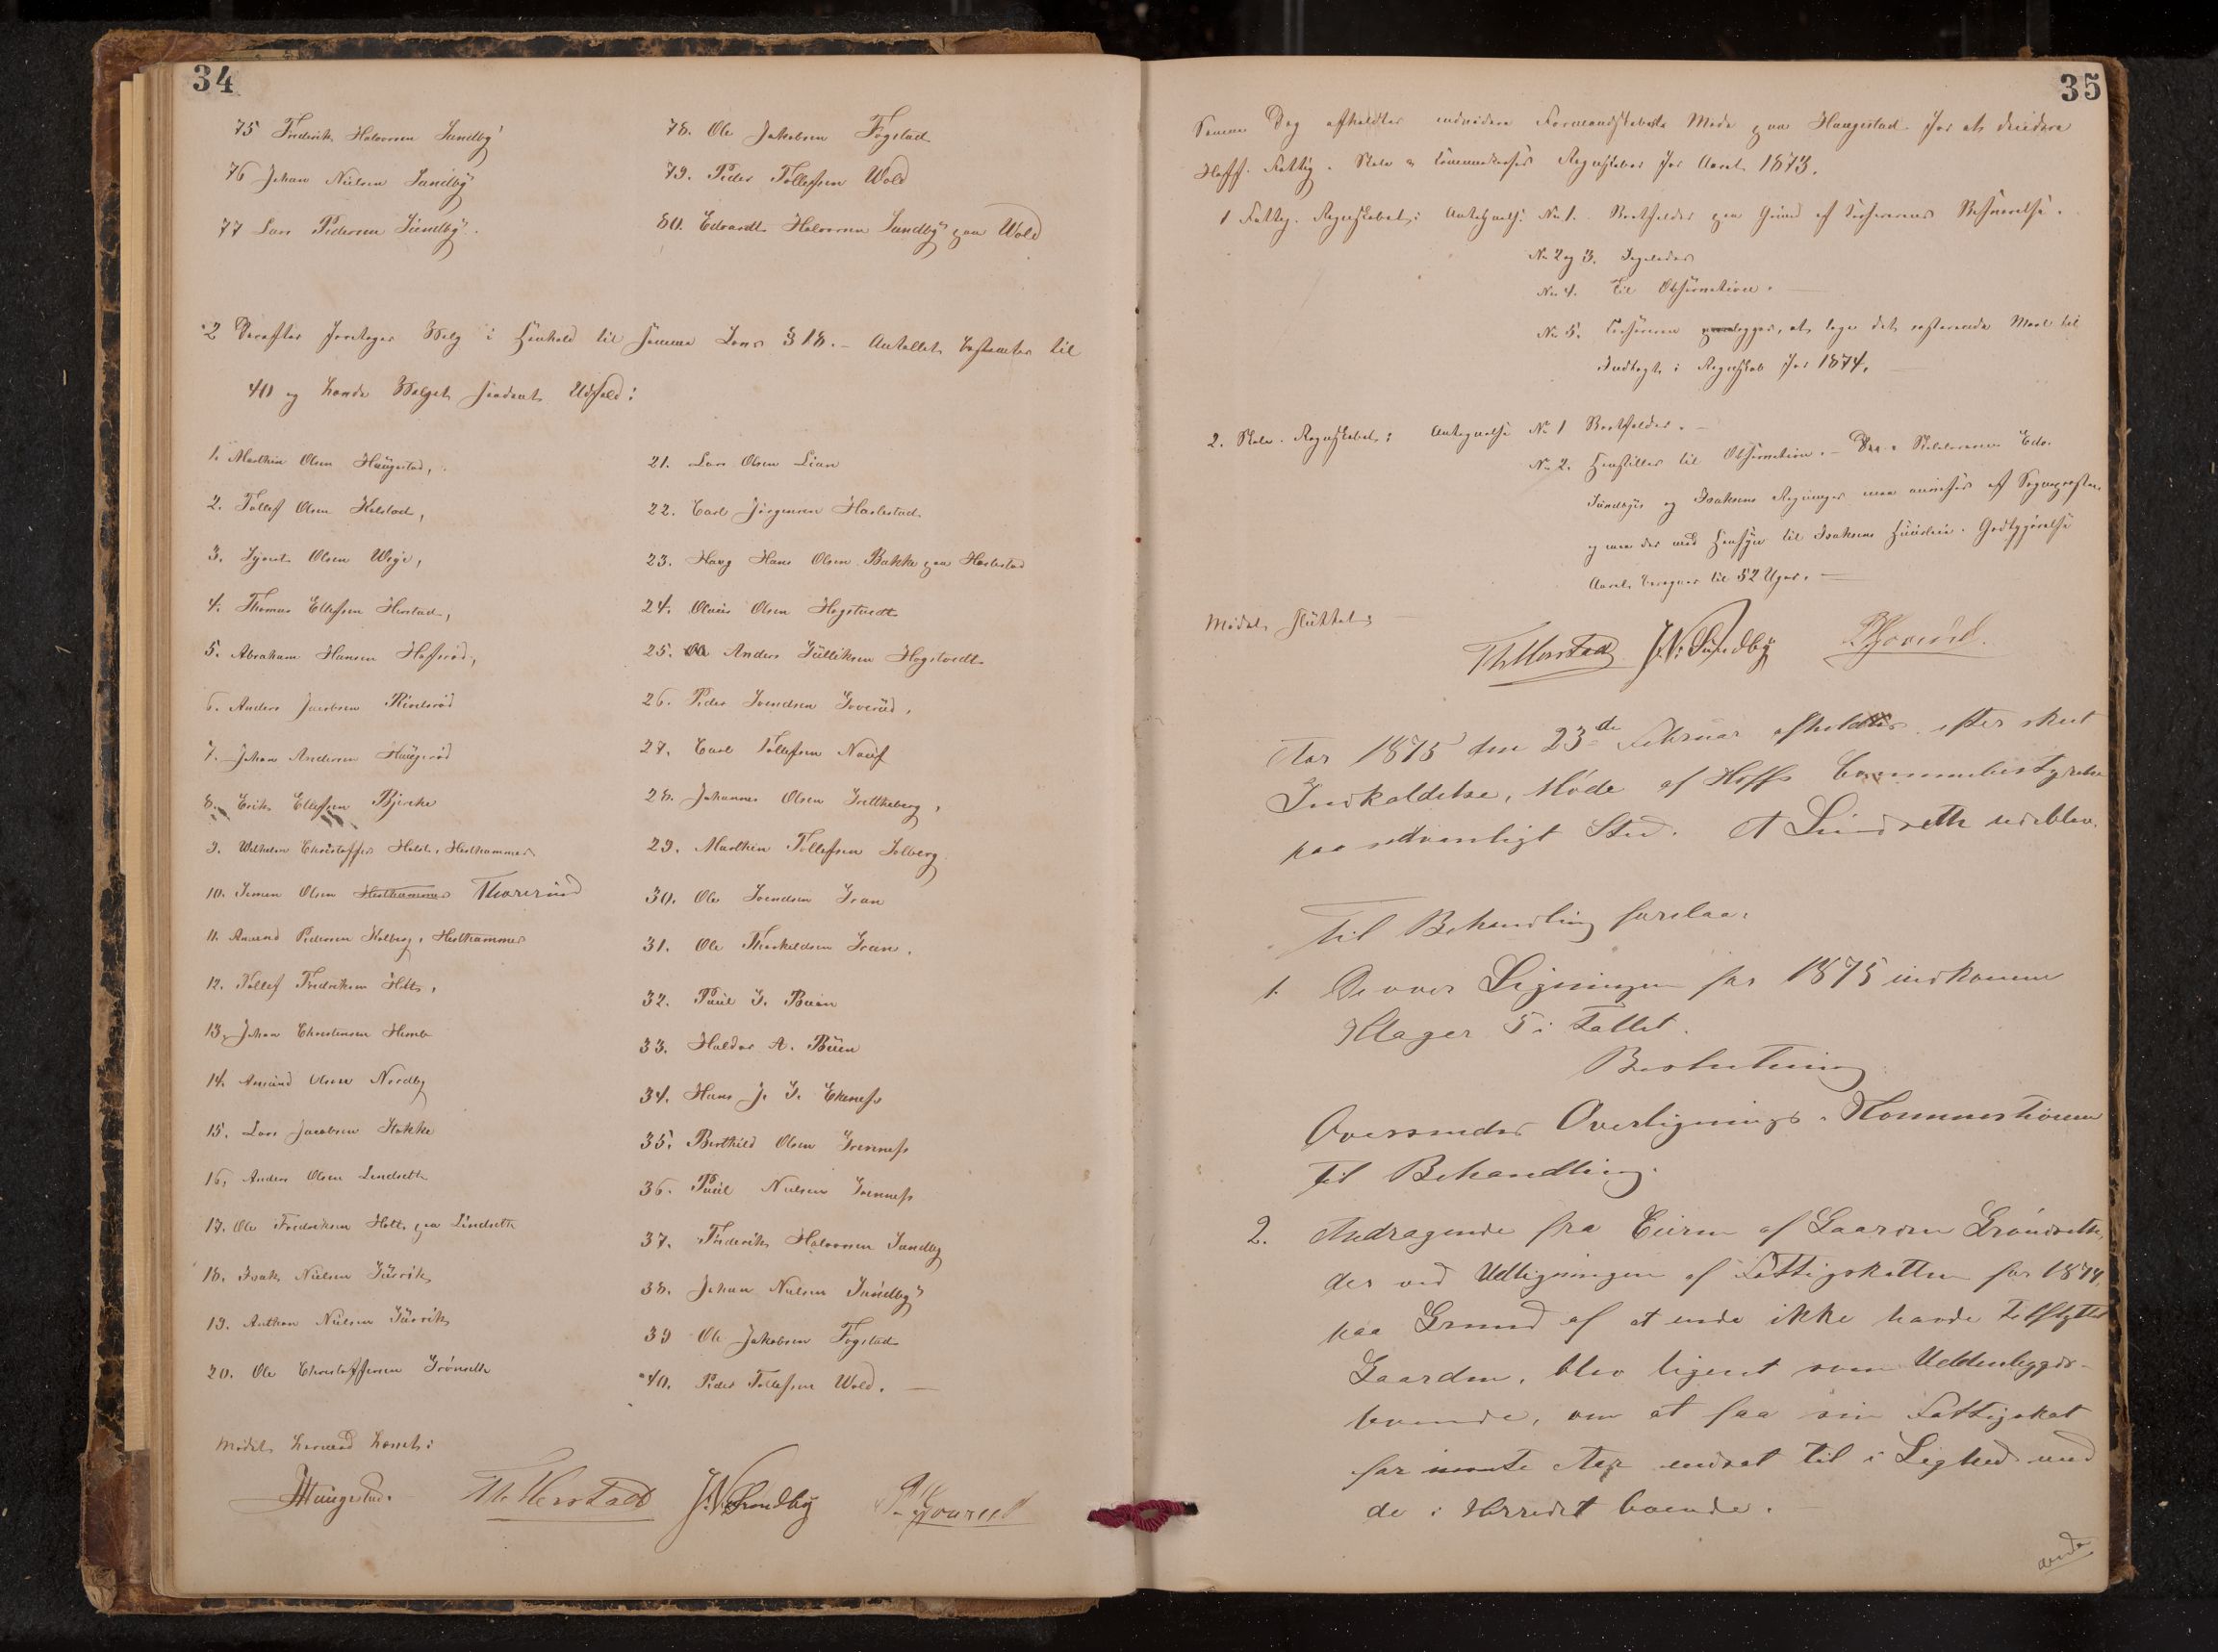 34
75 Frederik Halvorsen Sundby
76 Johan Nielsen Sundby
77 Lars Pedersen Sundby.
78. Ole Jakobsen Fogstad
79. Peder Tollefsen Wold
80. Edvardt Halvorsen Sundby paa Wold
2 Derefter foretoges Valg i Henhold til samme Lovs § 18. – Antallet bestemtes til
40 og havde Valget saadant Udfald:
1. Marthin Olsen Haugestad,
2. Tollef Olsen Helstad,
3. Syvert Olsen Wege,
4. Thomas Ellefsen Herstad,
5. Abraham Hansen Hofsrød,
6. Anders Jacobsen
7. Johan Andersen Haugerød
8. Erik Ellefsen Bjerke
9. Wilhelm Christoffer Holst, Hesthammer
10. Simen Olsen Hesthammer Thorerud
11. Amund Pedersen Solberg, Hesthammer
12. Tollef Fredriksen Holt,
13. Johan Christensen
14. Amund Olsen Nordby
15. Lars Jacobsen Hokke
16. Anders Olsen Lindseth
17. Ole Fredriksen Holt paa Lindseth
18. Isak Nielsen
19. Anthon Nielsen
20. Ole Christoffersen Grønseth
21. Lars Olsen Lian
22. Carl Jørgensen Haslestad
23. Haag Hans Olsen Bakke paa Haslestad
24. Olaus Olsen Hogstvedt
25. Anders Gulliksen Hogstvedt
26. Peder Svendsen
27. Carl Tollefsen
28. Johannes Olsen
29. Marthin Tollefsen Solberg
30. Ole Svendsen Gran
31. Ole Thorkeldsen Gran.
32. Paul G. Buen
33. Haldor A. Buen
34. Hans J. S. Ekenefs
35. Berthild Olsen Grennefs
36. Paul Nielsen Grennefs
37. Frederik Halvorsen Sundby
38. Johan Nielsen Sundby
39 Ole Jakobsen Fogstad
40. Peder Tollefsen Wold. —
Mødet hermed hævet:
Haugestad. Th. Herstad J. N. Sundby
35
Samme Dag afholdtes Formandskabets Møde paa Haugestad for at decidere
Hoffs Fattig- Skole & Regnskaber for Aaret 1873.
1 Fattig-Regnskabet: Antegnelse No 1. Bortfalder paa Grund af Besvarelse.
No 2 og 3. Ligeledes
No 4. Til Observation. —
No 5. at tage det resterende til
Indtægt i Regnskab for 1874. —
2. Skole-Regnskabet: Antegnelse No 1 Bortfalder. —
No 2. Henstilles til Observation. –
Sundbyes og Isaksens Regninger maa anvises af Sognepresten
og maa der med Hensyn til Isaksens Huusleie-Godtgjørelse
Aaret beregnes til 52 Uger. —
Mødet sluttet;
Th. Herstad J. N. Sundby
Aar 1875 den 23de Februar afholdtes efter skeet
Indkaldelse, Møde af Hoffs Communebestyrelse
paa sædvanligt Sted. A Lindseth udeblev.
Til Behandling forelaa:
1. De over Ligningen for 1875 indkomne
Klager 5 i Tallet.
Beslutning
Oversendes Overlignings-Kommissionen
til Behandling.
2. Andragende fra Eieren af Gaarden Grønseth,
der ved Udligningen af Fattigskatten for 1874,
paa Grund af at enda ikke havde tilflyttet
Gaarden, blev lignet som Uddenbygds-
boende, om at faa sin Fattigskat
for nævnte Aar nedsat til i Lighed med
de i Herredet boende.